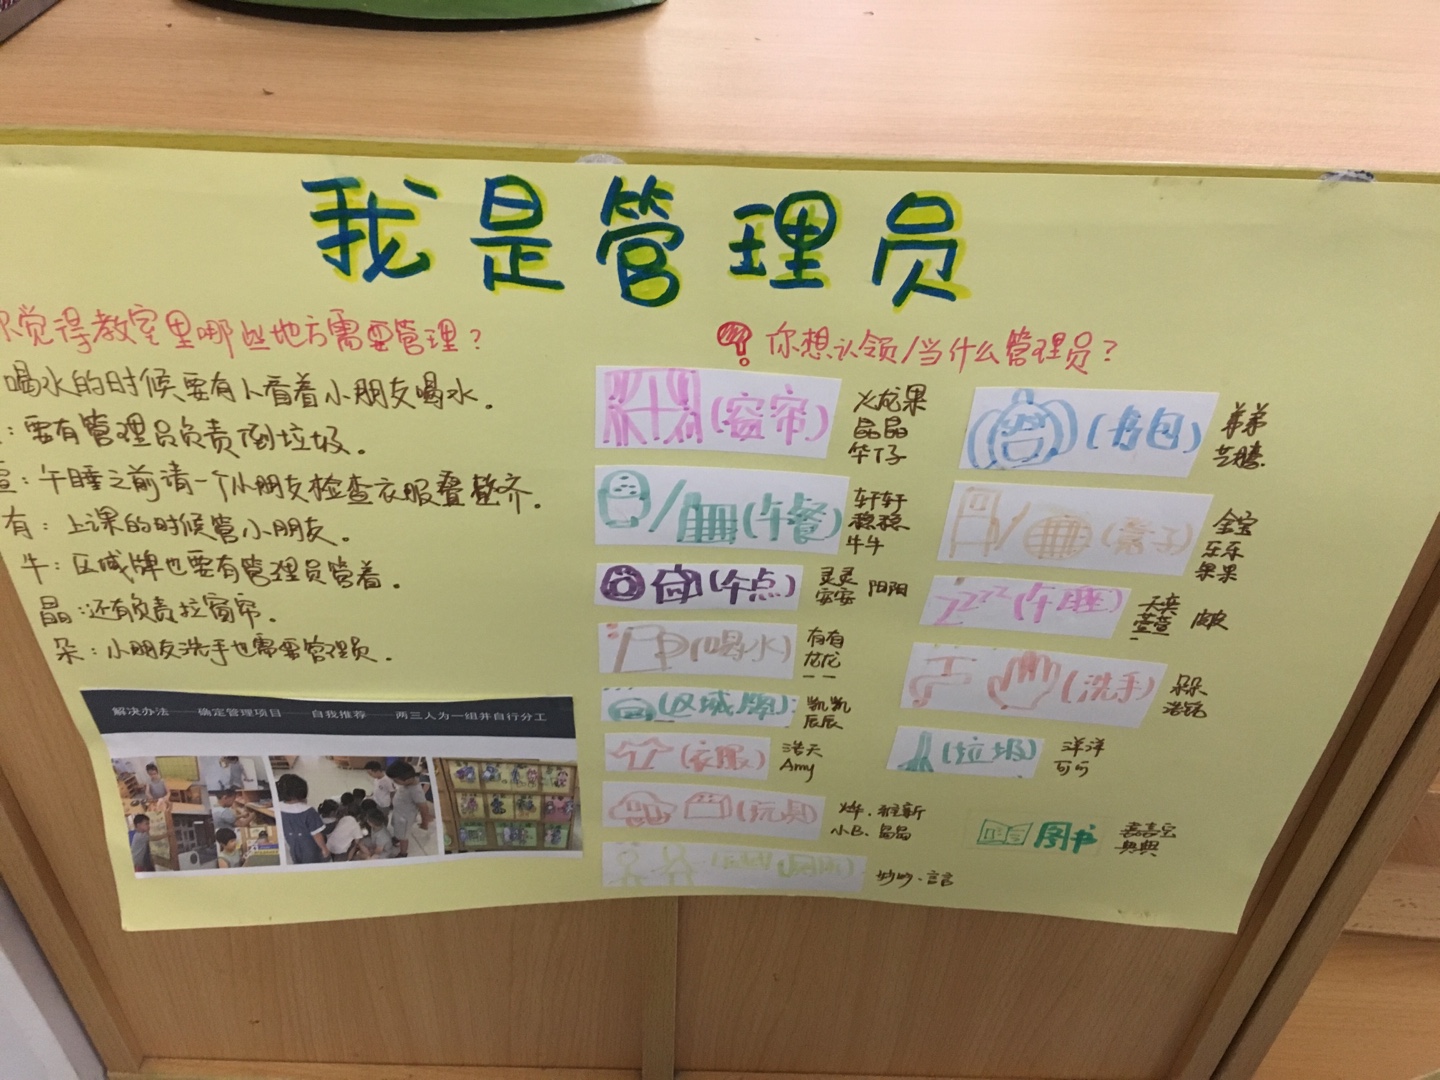 我是管理员
你觉得教室里哪些地方需要管理？
喝水的时候要有人看着小朋友喝水。
：要有管理员负责倒垃圾。
萱：午睡之前请一个小朋友检查衣服叠整齐。
有：上课的时候管小朋友。
牛：区域牌也要有管理员管着。
晶：还有负责拉窗帘。
朵：小朋友洗手也需要管理员。
解决办法——确定管理项目——自我推荐——两三人为一组并自行分工
你想认领/当什么管理员？
(窗帘)
火龙果
晶晶
牮仔
(午餐)
轩轩
稳稳
牛牛
(午点)
灵灵 阳阳
安安
(喝水)
有有
龙龙
(区域牌)：
凯凯
辰辰
(衣服)
浩天
Amy
(玩具)
烨、雅新
小B、晶晶
妙妙、言言
(书包)
弟弟
芝腾
(椅子)
金宝
乐乐
果果
zzzz(午睡)
天奕
萱萱
(洗手)
朵朵
浩铭
(垃圾)
洋洋
可可
图书
嘉嘉宝
典典